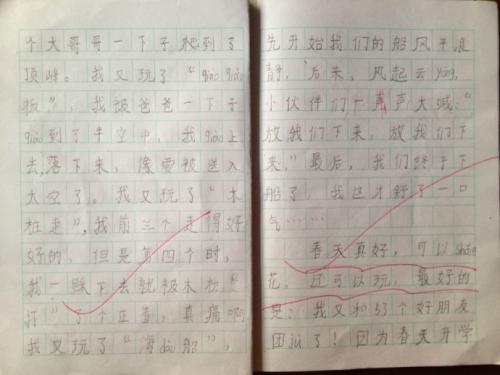 个大哥哥一下子爬到了
顶峰。我又玩了“qiāo qiāo
板”，我被爸爸一下子
qiāo到了半空中，我qiāo上
去，落下来，像要被送入
太空了。我又玩了“木
桩走”，我前三个走得好
好的，但是第四个时，
我一踩下去就被木桩“
打”了个正着，真痛啊
我又玩了“海dào船”，
先开始我们的船风平浪
静，后来，风起云yǒng，
小伙伴们一声声大喊：“
放我们下来，放我们下
来。”最后，我们终于下
船了，我这才舒了一口
气……
春天真好，可以shǎng
花，还可以玩，最好的
是：我又和53个好朋友
团jù了！因为春天开学